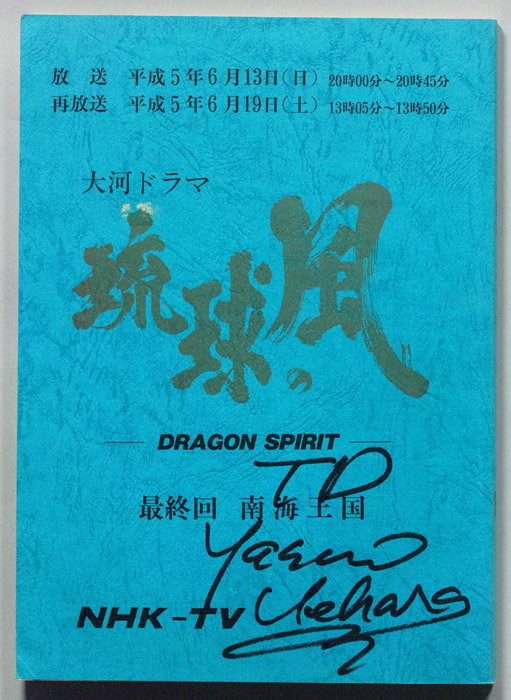 放送 平成5年6月13日(日) 20時00分~20時45分
再放送 平成5年6月19日(土) 13時05分~13時50分
大河ドラマ
琉球の風
DRAGON SPIRIT
最終回 南海王国
TD
Yasuo
Uehara
NHK-TV